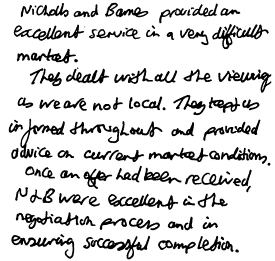 Nicholls and Barnes provided an
excellent service in a very difficult
market.
They dealt with all the viewing
as we are not local. They kept us
informed throughout and provided
advice on current market conditions.
Once an offer had been received,
N&B were excellent in the
negotiation process and in
ensuring successful completion.